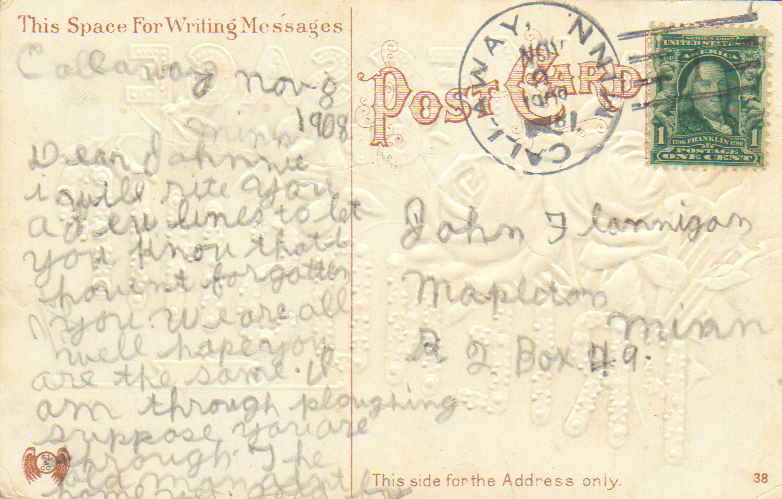 This Space For Writing Messages
Callaway Nov 8
Minn 1908
Dear Johnnie
i will rite you
a few lines to let
you know that i
havent forgotten
you. We are all
well hope you
are the same. I
am through ploughing
suppose you are
through. The
old man
POST CARD
CALLAWAY, MINN.
NOV
9
1908
UNITED STATES OF
AMERICA
1 FRANKLIN 1
POSTAGE
ONE CENT
John Flannigan
Mapleton
Minn
R 2 Box 49.
This side for the Address only.
38